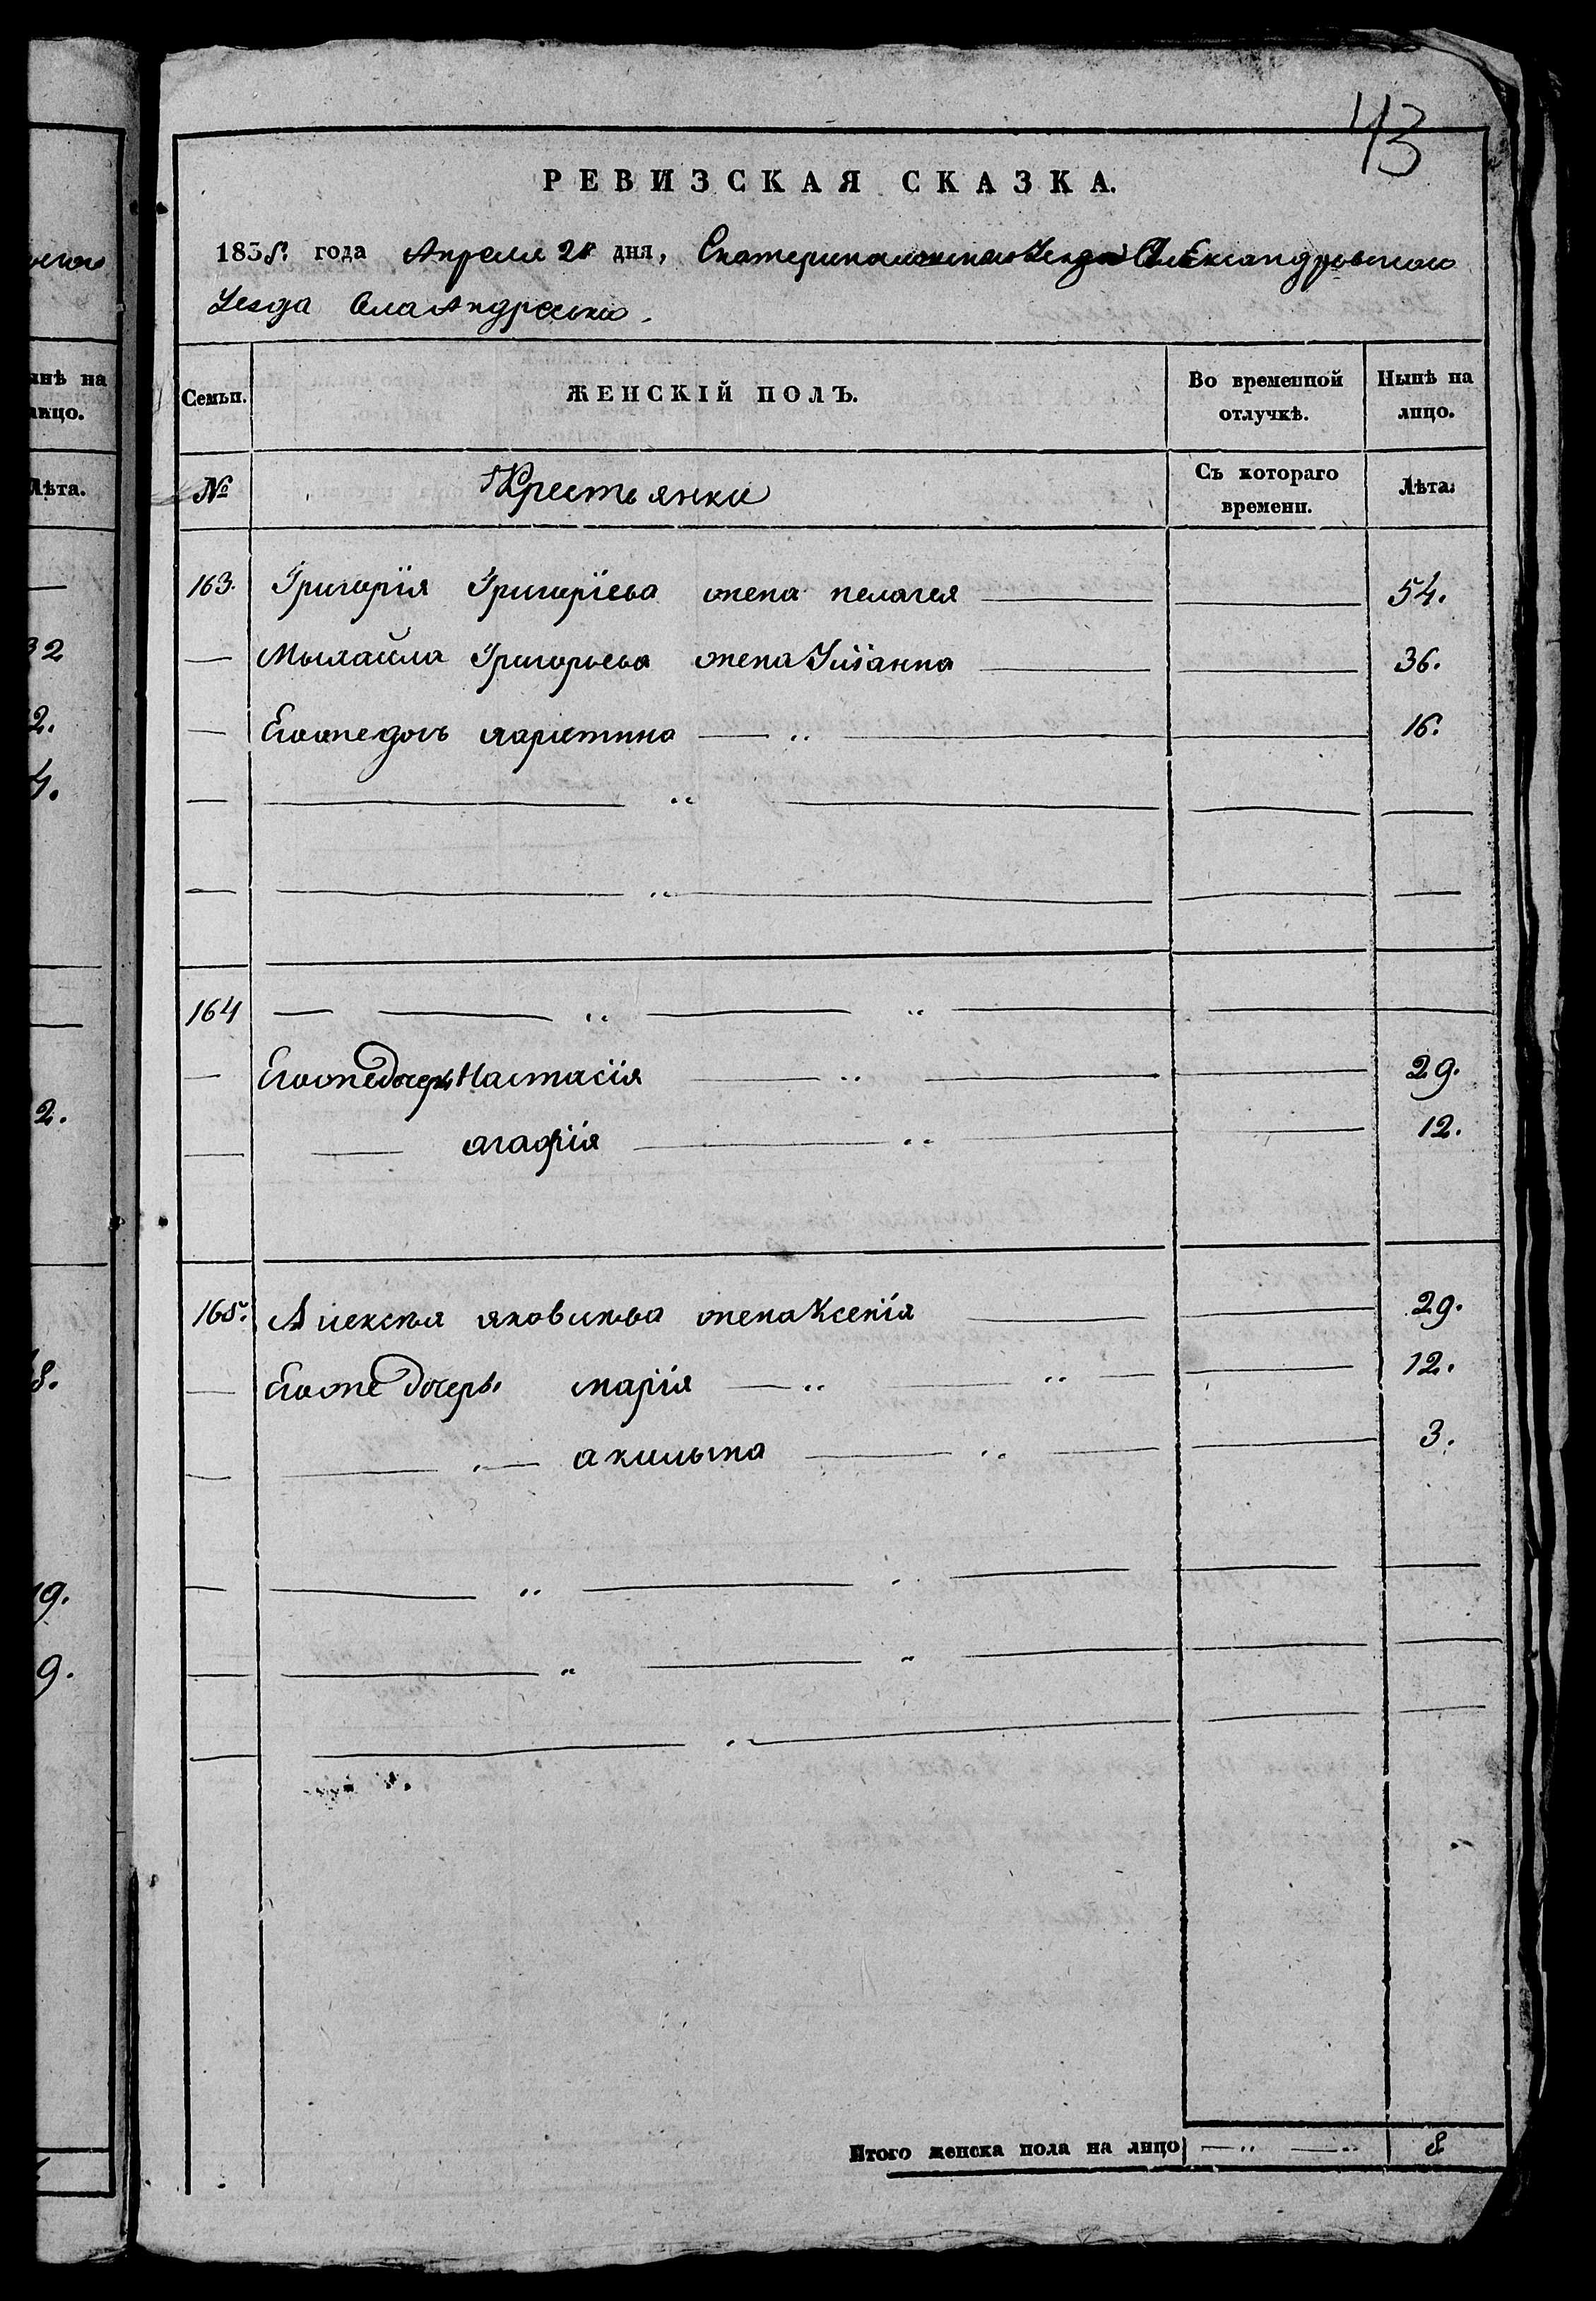 43
РЕВИЗСКАЯ СКАЗКА.
1835. года Апреля 25 дня, Екатеринославской Александровского
Уезда Села Андреевки
Семьи. ЖЕНСКІЙ ПОЛЪ. Во временной отлучкѣ. Нынѣ на лицо.
№ Крестьянки Съ котораго времени. Лѣта.
163. Григорія Григоріева жена пелагея 54.
Мыхайла Григорьева жена Улїанна 36.
Егоже дочь харистина 16.
164
Егоже дочерь Настасія 29.
агафія 12.
165. Алексѣя яковлѣва жена Ксенія 29.
Егоже дочерь марія 12.
акилына 3.
Итого женска пола на лицо 8
ынѣ на
лицо.
Лѣта.
32
2.
4.
2.
8.
19.
9.